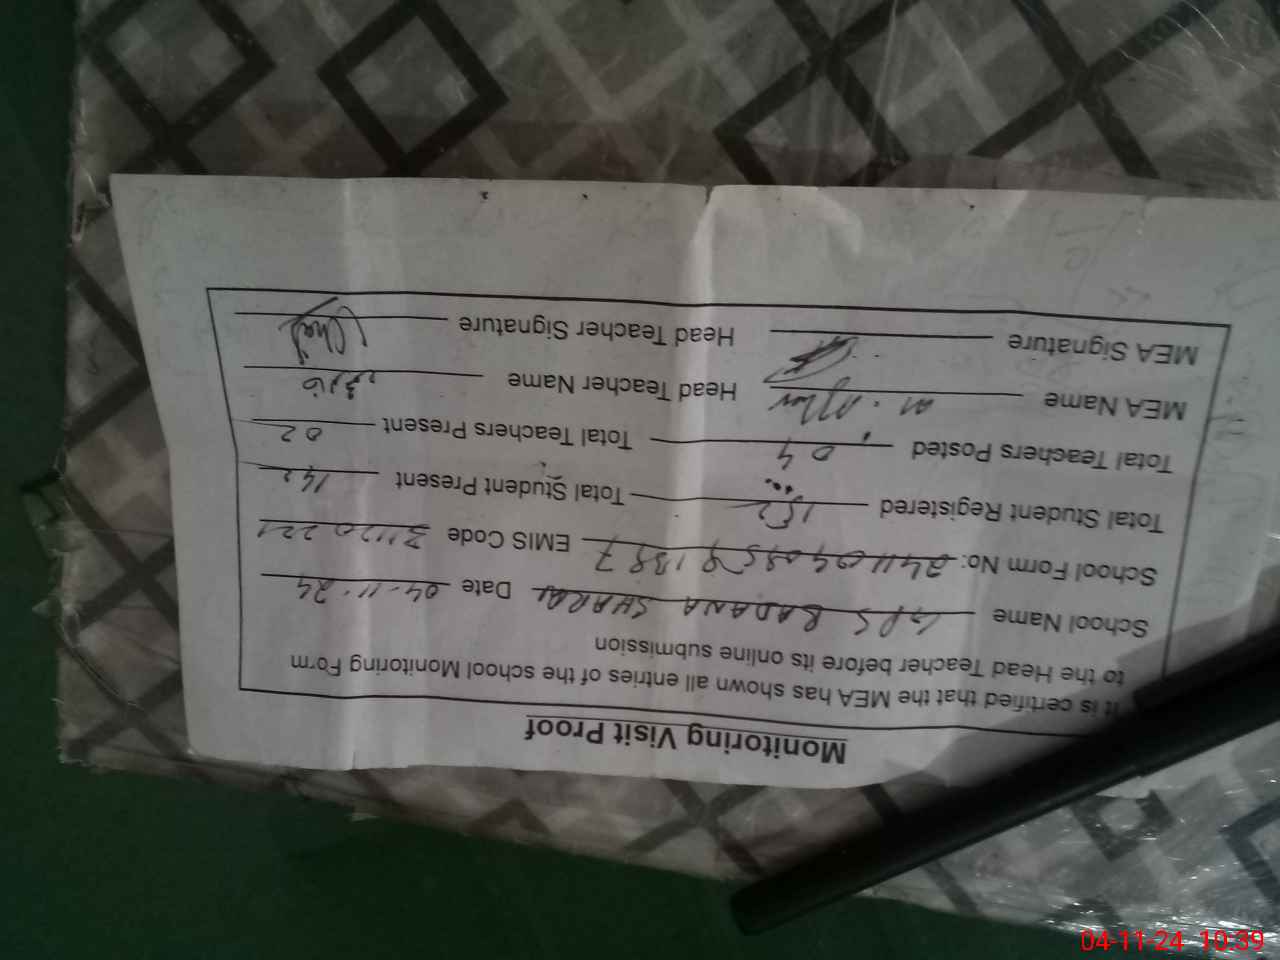 Monitoring Visit Proof
It is certified that the MEA has shown all entries of the school Monitoring Form
to the Head Teacher before its online submission
School Name GPS BADANA SHARQI Date 04-11-24
School Form No: EMIS Code 31120221
Total Student Registered 152 Total Student Present 142
Total Teachers Posted 04 Total Teachers Present 02
MEA Name Head Teacher Name
MEA Signature Head Teacher Signature
04-11-24 10:39